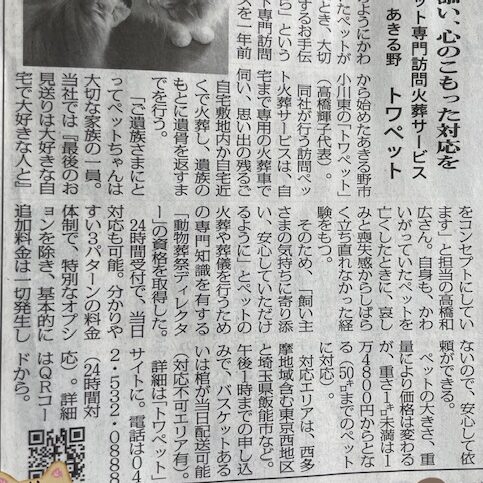 い、心のこもった対応を
ット専門訪問火葬サービス
あきる野　トワペット
ようにかわ
たペットが
とき、大切
するお手伝
ら」という
ット専門訪問
スを一年前
から始めたあきる野市
小川東の「トワペット」
（高橋輝子代表）。
同社が行う訪問ペッ
ト火葬サービスは、自
宅まで専用の火葬車で
伺い、思い出の残るご
自宅敷地内か自宅近
くで火葬し、遺族の
もとに遺骨を返すま
でを行う。
「ご遺族さまにと
ってペットちゃんは
大切な家族の一員。
当社では『最後のお
見送りは大好きな自
宅で大好きな人と』
をコンセプトにしてい
ます」と担当の高橋和
広さん。自身も、かわ
いがっていたペットを
亡くしたときに、哀し
みと喪失感からしばら
く立ち直れなかった経
験をもつ。
そのため、「飼い主
さまの気持ちに寄り添
い、安心していただけ
るように」とペットの
火葬や葬儀を行うため
の専門知識を有する
「動物葬祭ディレクタ
ー」の資格を取得した。
24時間受付で、当日
対応も可能。分かりや
すい3パターンの料金
体制で、特別なオプシ
ョンを除き、基本的に
追加料金は一切発生し
ないので、安心して依
頼ができる。
ペットの大きさ、重
量により価格は変わる
が、重さ1㌔未満は1
万4800円からとな
る（50㌔までのペット
に対応）。
対応エリアは、西多
摩地域含む東京西地区
と埼玉県飯能市など。
午後1時までの申し込
みで、バスケットある
いは棺が当日配送可能
（対応不可エリア有）。
詳細は「トワペット」
サイトに。電話は04
2・532・0888
（24時間対
応）。詳細
はQRコー
ドから。